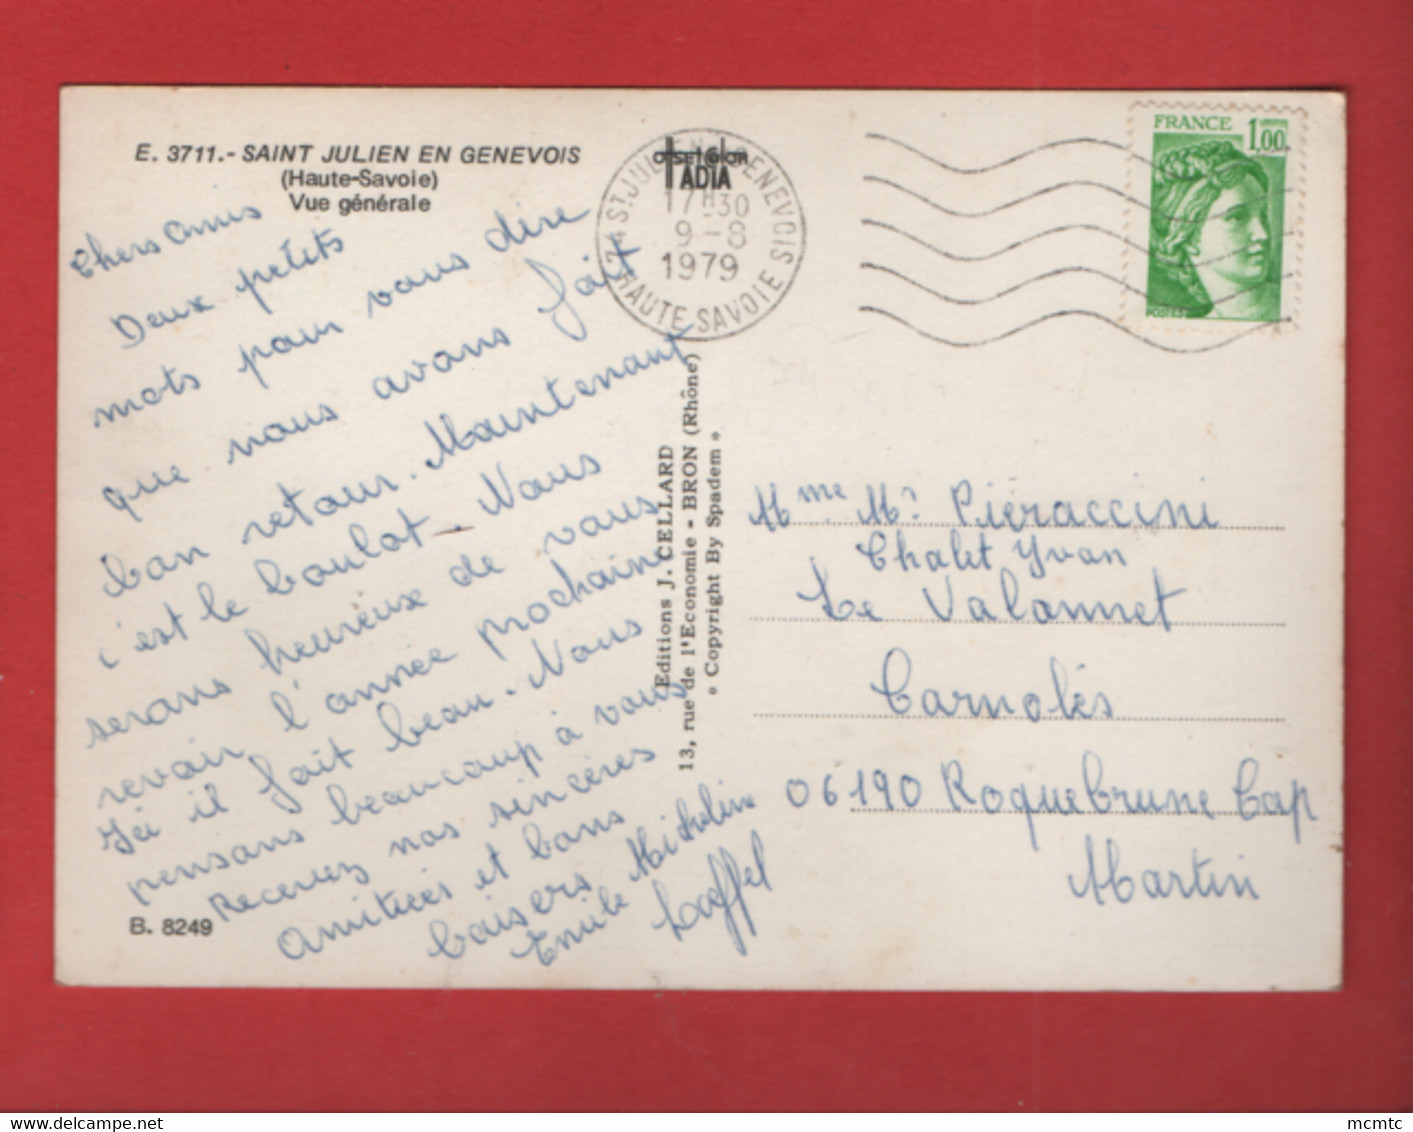 E. 3711.- SAINT JULIEN EN GENEVOIS
(Haute-Savoie)
Vue générale
Chers Amis
Deux petits
mots pour vous dire
que nous avons fait
bon retour. Maintenant
c'est le boulot. Nous
serons heureux de vous
revoir l'année prochaine
Ici il fait beau. Nous
pensons beaucoup à vous
Recevez nos sincères
Amitiées et bons
baisers Micheline
Emile Loeffel
B. 8249
74 ST JULIEN EN GENEVOIS
17H30
9-8
1979
HAUTE SAVOIE
OFFSET COLOR
IADIA
FRANCE 1,00
Editions J. CELLARD
13, rue de l'Economie - BRON (Rhône)
« Copyright By Spadem »
Mme Mr Pieraccini
Chalet Yvan
Le Valonnet
Carnolés
06190 Roquebrune Cap
Martin
mcmtc